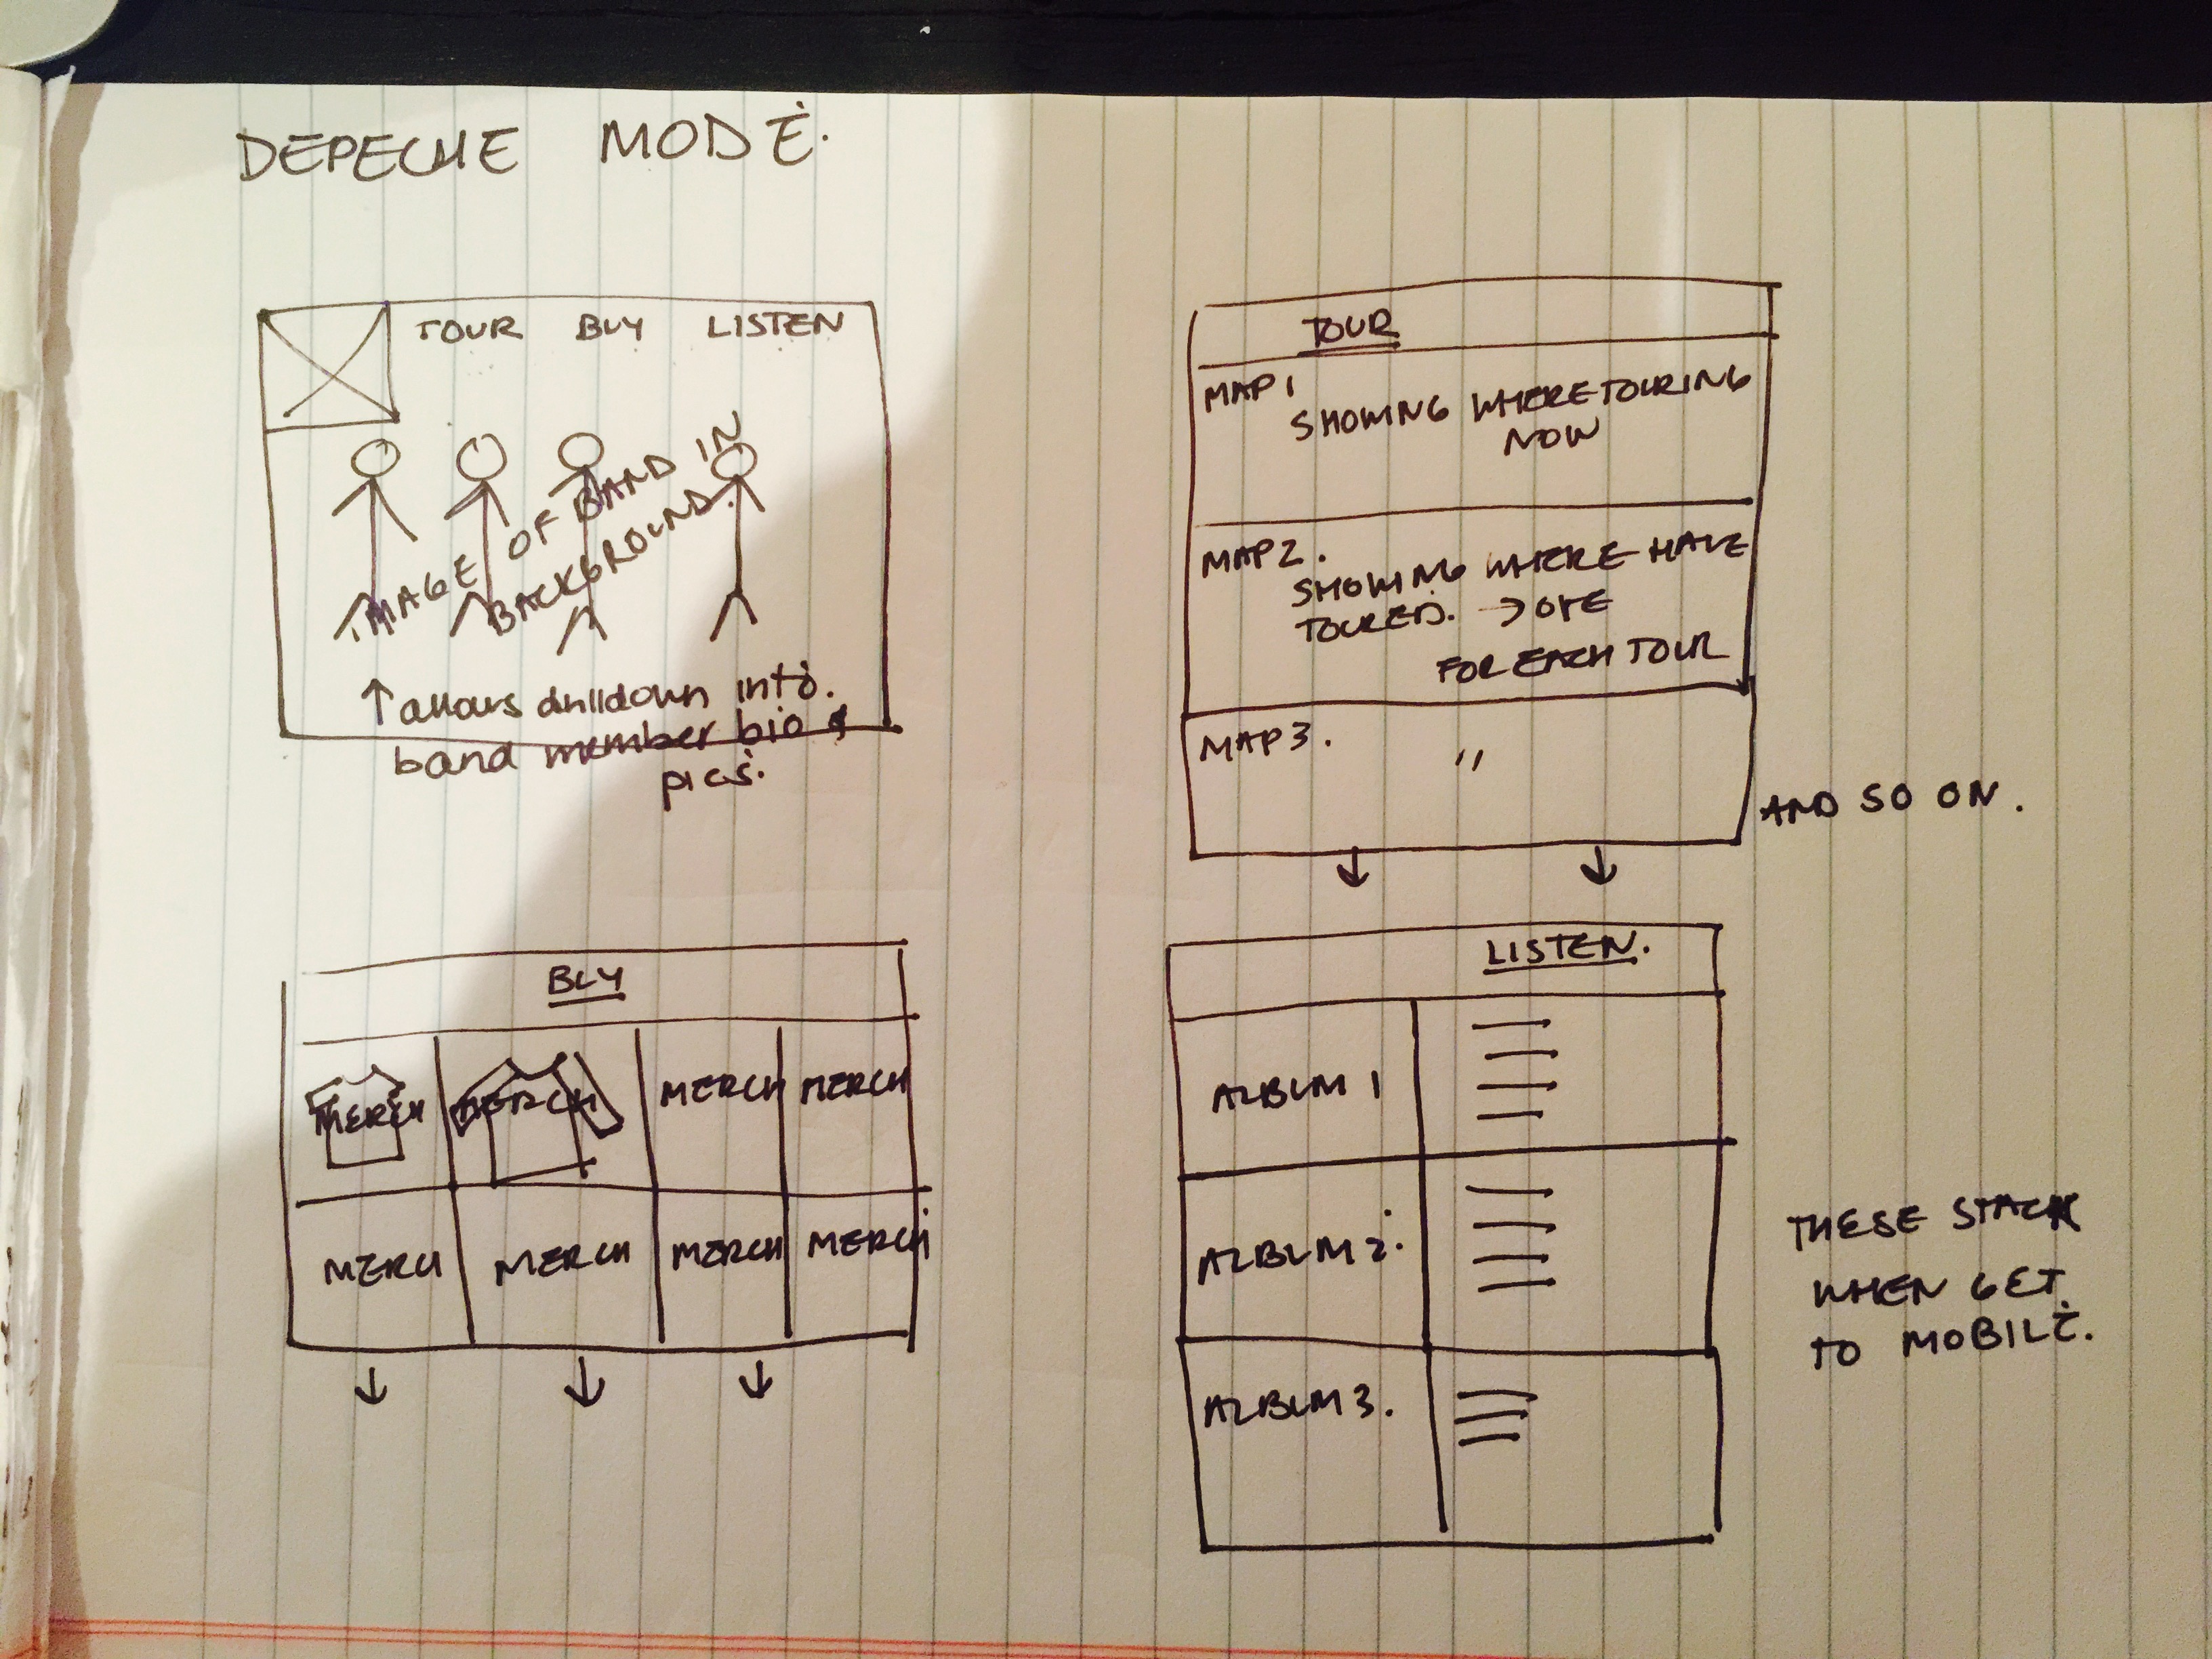 DEPECHE MODE.
TOUR BUY LISTEN
IMAGE OF BAND IN
BACKGROUND.
↑ allows drilldown into
band member bio &
pics.
TOUR
MAP 1
SHOWING WHERE TOURING
NOW
MAP 2.
SHOWING WHERE HAVE
TOURED. → ONE
FOR EACH TOUR
MAP 3. "
AND SO ON.
BUY
MERCH MERCH MERCH MERCH
MERCH MERCH MERCH MERCH
LISTEN.
ALBUM 1
ALBUM 2.
ALBUM 3.
THESE STACK
WHEN GET
TO MOBILE.